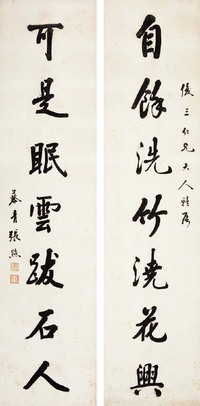 自餘洗竹澆花興
三仁兄大人雅屬
可是眠雲跋石人
慕青張